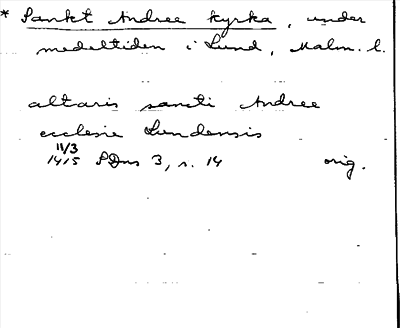 * Sankt Andree kyrka, under
medeltiden i Lund, Malm. l.
altaris sancti Andree
ecclesie Lundensis
11/3
1415 SDns 3, s. 14 orig.